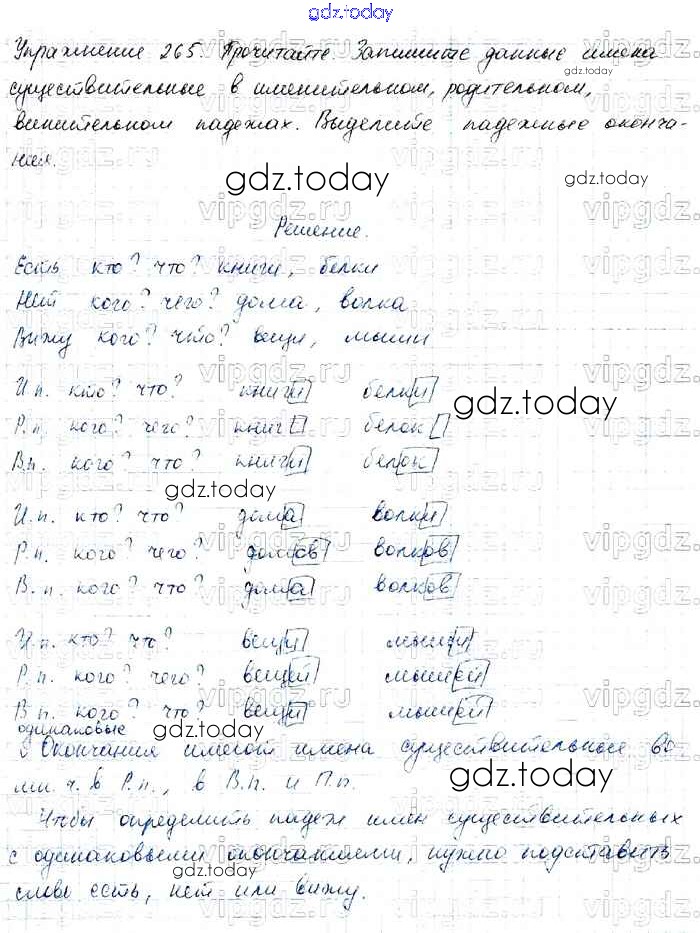 gdz.today
Упражнение 265. Прочитайте. Запишите данные имена
существительные в именительном, родительном,
винительном падежах. Выделите падежные оконча-
ния.
Решение.
Есть кто? что? книги, белки
Нет кого? чего? дома, волка
Вижу кого? что? вещи, мыши
И.п. кто? что? книги белки
Р.п. кого? чего? книг белок
В.п. кого? что? книги белок
И.п. кто? что? дома волки
Р.п. кого? чего? домов волков
В.п. кого? что? дома волков
И.п. кто? что? вещи мыши
Р.п. кого? чего? вещей мышей
В.п. кого? что? вещи мышей
одинаковые
Окончания имеют имена существительные во
мн. ч. в Р.п., в В.п. и П.п.
Чтобы определить падеж имен существительных
с одинаковыми окончаниями, нужно подставить
слово есть, нет или вижу.